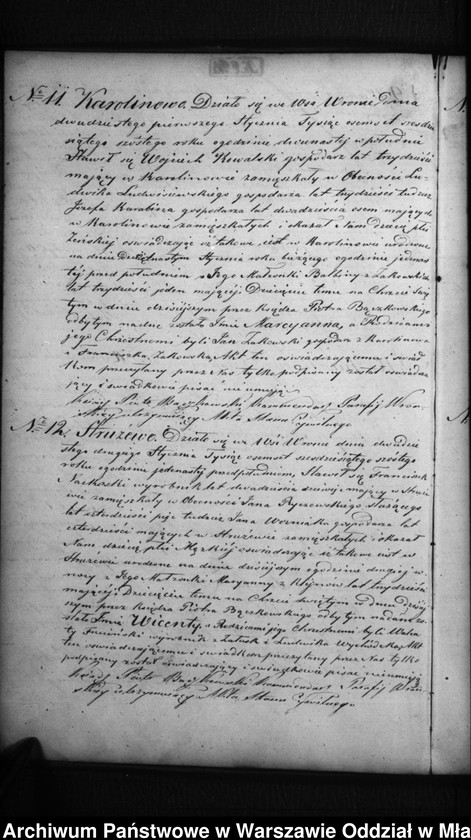 № 11. Karolinowo. Działo się we wsi Wronie dnia
dwudziestego pierwszego Stycznia Tysiąc osmset sześdzie
siątego szóstego roku o godzinie dwunastéj w południe
Stawił się Woyciech Kowalski gospodarz lat trzydzieści
mający w Karolinowie zamięszkały w Obecności Lu-
dwika gospodarza lat trzydzieści tudzież
Józefa Karabina gospodarza lat dwadzieścia osm mających
w Karolinowie zamięszkałych i okazał Nam dziecię płci
Zeńskiej oswiadczając iż takowe jest w Karolinowie urodzone
na dniu Stycznia roku bieżącego o godzinie jedenas
téj przed południem z Jego Małżonki Balbiny z Żakowskich
lat trzydzieści jeden mającéj. Dziecięciu temu na Chrzcie Świę
tym w dniu dzisiejszym przez Księdza Piotra Bączkowskiego
odbytym nadane zostało Imie Marcyanna, a Rodzicami
jego Chrzestnemi byli Jan Żakowski gospodarz z Karolinowa
i Franciszka Żakowska, Akt ten oswiadczającemu i świad
kom przeczytany przez Nas tylko podpisany został oswiadcza
jący i świadkowie pisać nieumieją
Xiądz Piotr Bączkowski Kommendarz Parafij Wroń-
skiéj utrzymujący Akta Stanu Cywilnego
№ 12. Strużewo. Działo się w Wsi Wronie dnia dwudzie
stego drugiego Stycznia Tysiąc osmset sześdziesiątego szóstego
roku o godzinie jedenastéj przed południem, Stawił się Franciszek
wyrobnik lat dwadzieścia dziewięć mający w Struże
wie zamięszkały w Obecności Jana Ryszewskiego Służącego
lat czterdzieści pięć tudzież Jana Wożniaka gospodarza lat
czterdzieści mających w Strużewie zamięszkałych i okazał
Nam dziecię płci Męzkiéj oswiadczając iż takowe jest w
Strużewie urodzone na dniu dzisiejszym o godzinie drugiéj w
nocy z Jego Małżonki Maryanny z lat trzydzieści
mającéj. Dziecięciu temu na Chrzcie Świętym w dniu dzisiej
szym przez Księdza Piotra Bączkowskiego odbytym nadane zo-
stało Imie Wicenty, a Rodzicami jego Chrzestnemi byli Walen
ty wyrobnik z i Ludwika Akt
ten oswiadczającemu i swiadkom przeczytany przez Nas tylko
podpisany został oswiadczający i swiadkowie pisać nieumieją
Xiądz Piotr Bączkowski Kommendarz Parafij Wroń-
skiéj utrzymujący Akta Stanu Cywilnego
Archiwum Państwowe w Warszawie Oddział w Mła